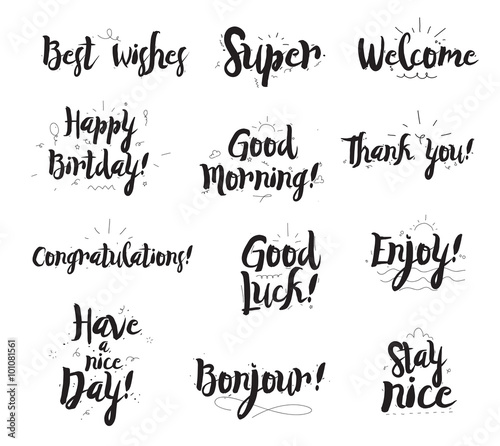 Best wishes
Super
Welcome
Happy
Birtday!
Good
Morning!
Thank you!
Congratulations!
Good
Luck!
Enjoy!
Have
a
nice
Day!
Bonjour!
Stay
nice
Adobe Stock | #101081561